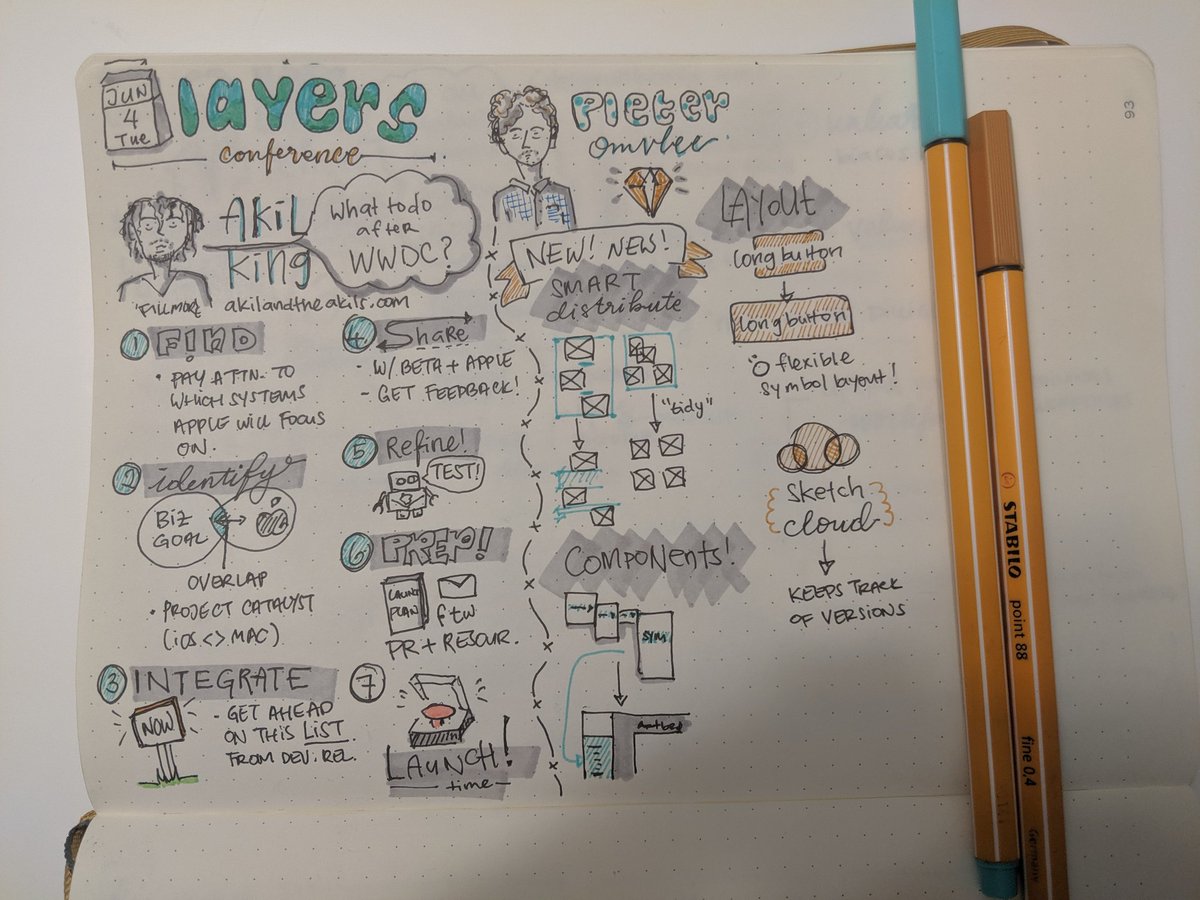 JUN
4
Tue
layers
conference
Akil
King
What to do
after
WWDC?
"FILLMORE
akilandtheakils.com
1 FIND
• PAY ATTN. TO
WHICH SYSTEMS
APPLE WILL FOCUS
ON.
2 identify
BIZ
GOAL
OVERLAP
• PROJECT CATALYST
(iOS <> MAC)
3 INTEGRATE
NOW
- GET AHEAD
ON THIS LIST
FROM DEV. REL.
4 Share
- W/ BETA + APPLE
- GET FEEDBACK!
5 Refine!
TEST!
6 PREP!
LAUNCH
PLAN
ftw
PR + RESOUR.
7
LAUNCH!
time
Pieter
Omvlee
NEW! NEW!
SMART
distribute
"tidy"
COMPONENTS!
SYM
LAYOUT
long button
long button
flexible
symbol layout!
Sketch
cloud
KEEPS TRACK
OF VERSIONS
93
STABILO
point 88
fine 0,4
Germany